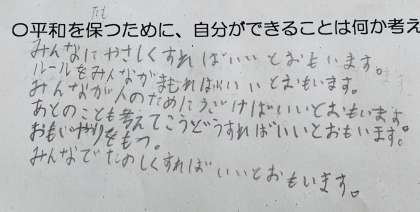 〇平和を保つために、自分ができることは何か考え
みんなにやさしくすればいいとおもいます。
ルールをみんながまもればいいとおもいます。
みんなが人のためにうごけばいいとおもいます。
あとのことも考えてこうどうすればいいとおもいます。
おもいやりをもつ。
みんなでたのしくすればいいとおもいます。